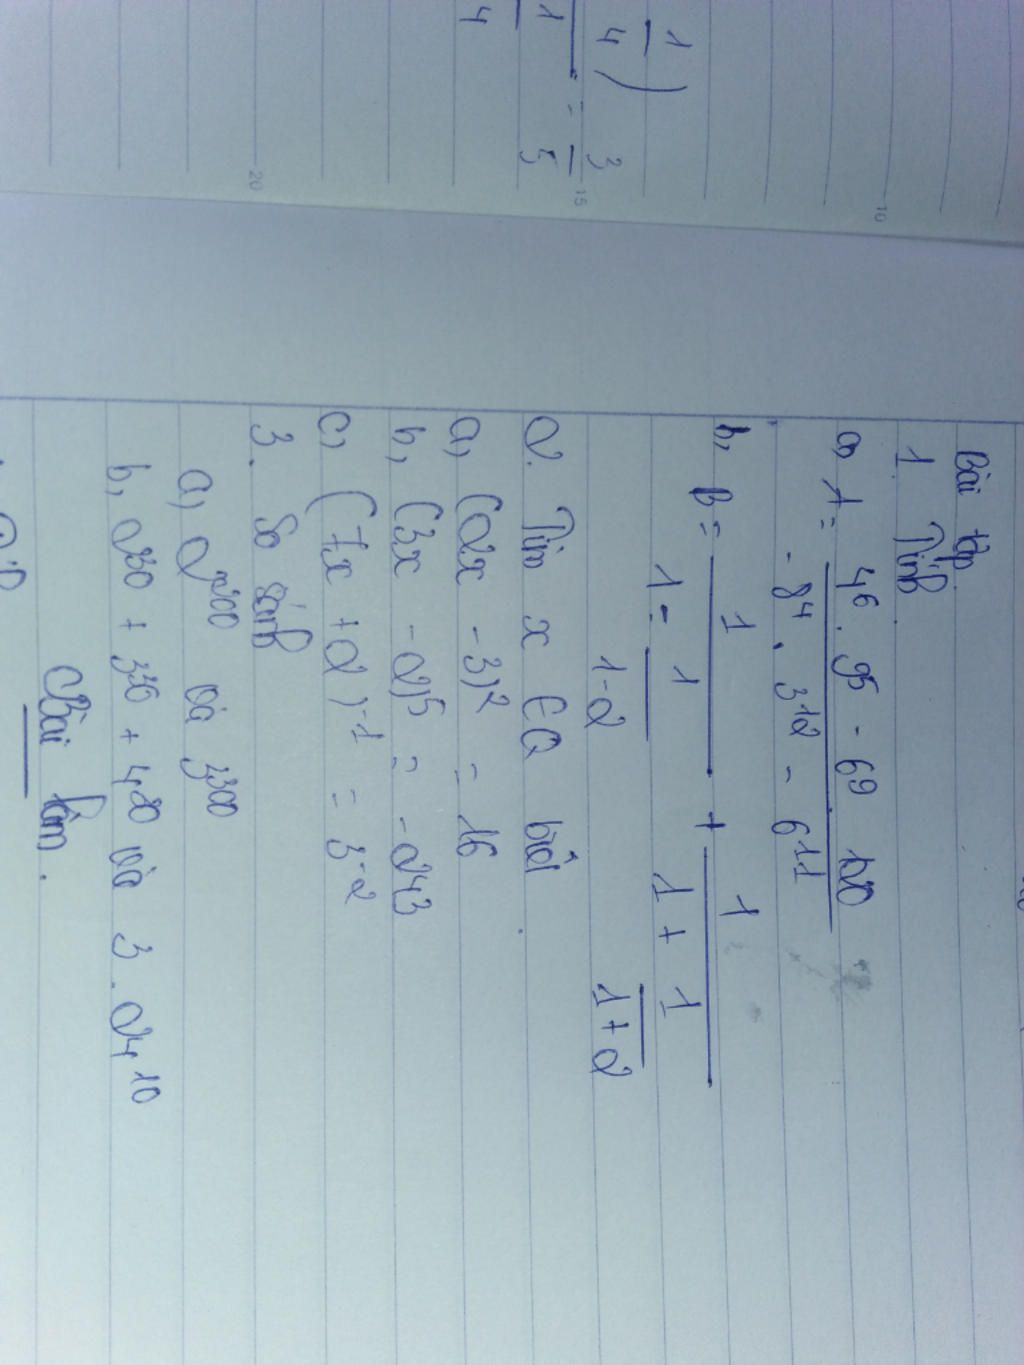 1
4 )
3
1
4
=
5
10
15
20
Bài tập
1 Tính
a, 1 = 4⁶ . 9⁵ - 6⁹ 120
- 8⁴ . 3¹² - 6¹¹
b, B = 1 + 1
1 - 1 1 + 1
1-2 1+2
2. Tìm x ∈ Q biết
a, (2x - 3)² = 16
b, (3x - 2)⁵ = -243
c, (7x + 2)⁻¹ = 3⁻²
3. So sánh
a, 2²⁰⁰ và 3³⁰⁰
b, 2³⁰ + 3³⁰ + 4³⁰ và 3 . 24¹⁰
Bài làm.